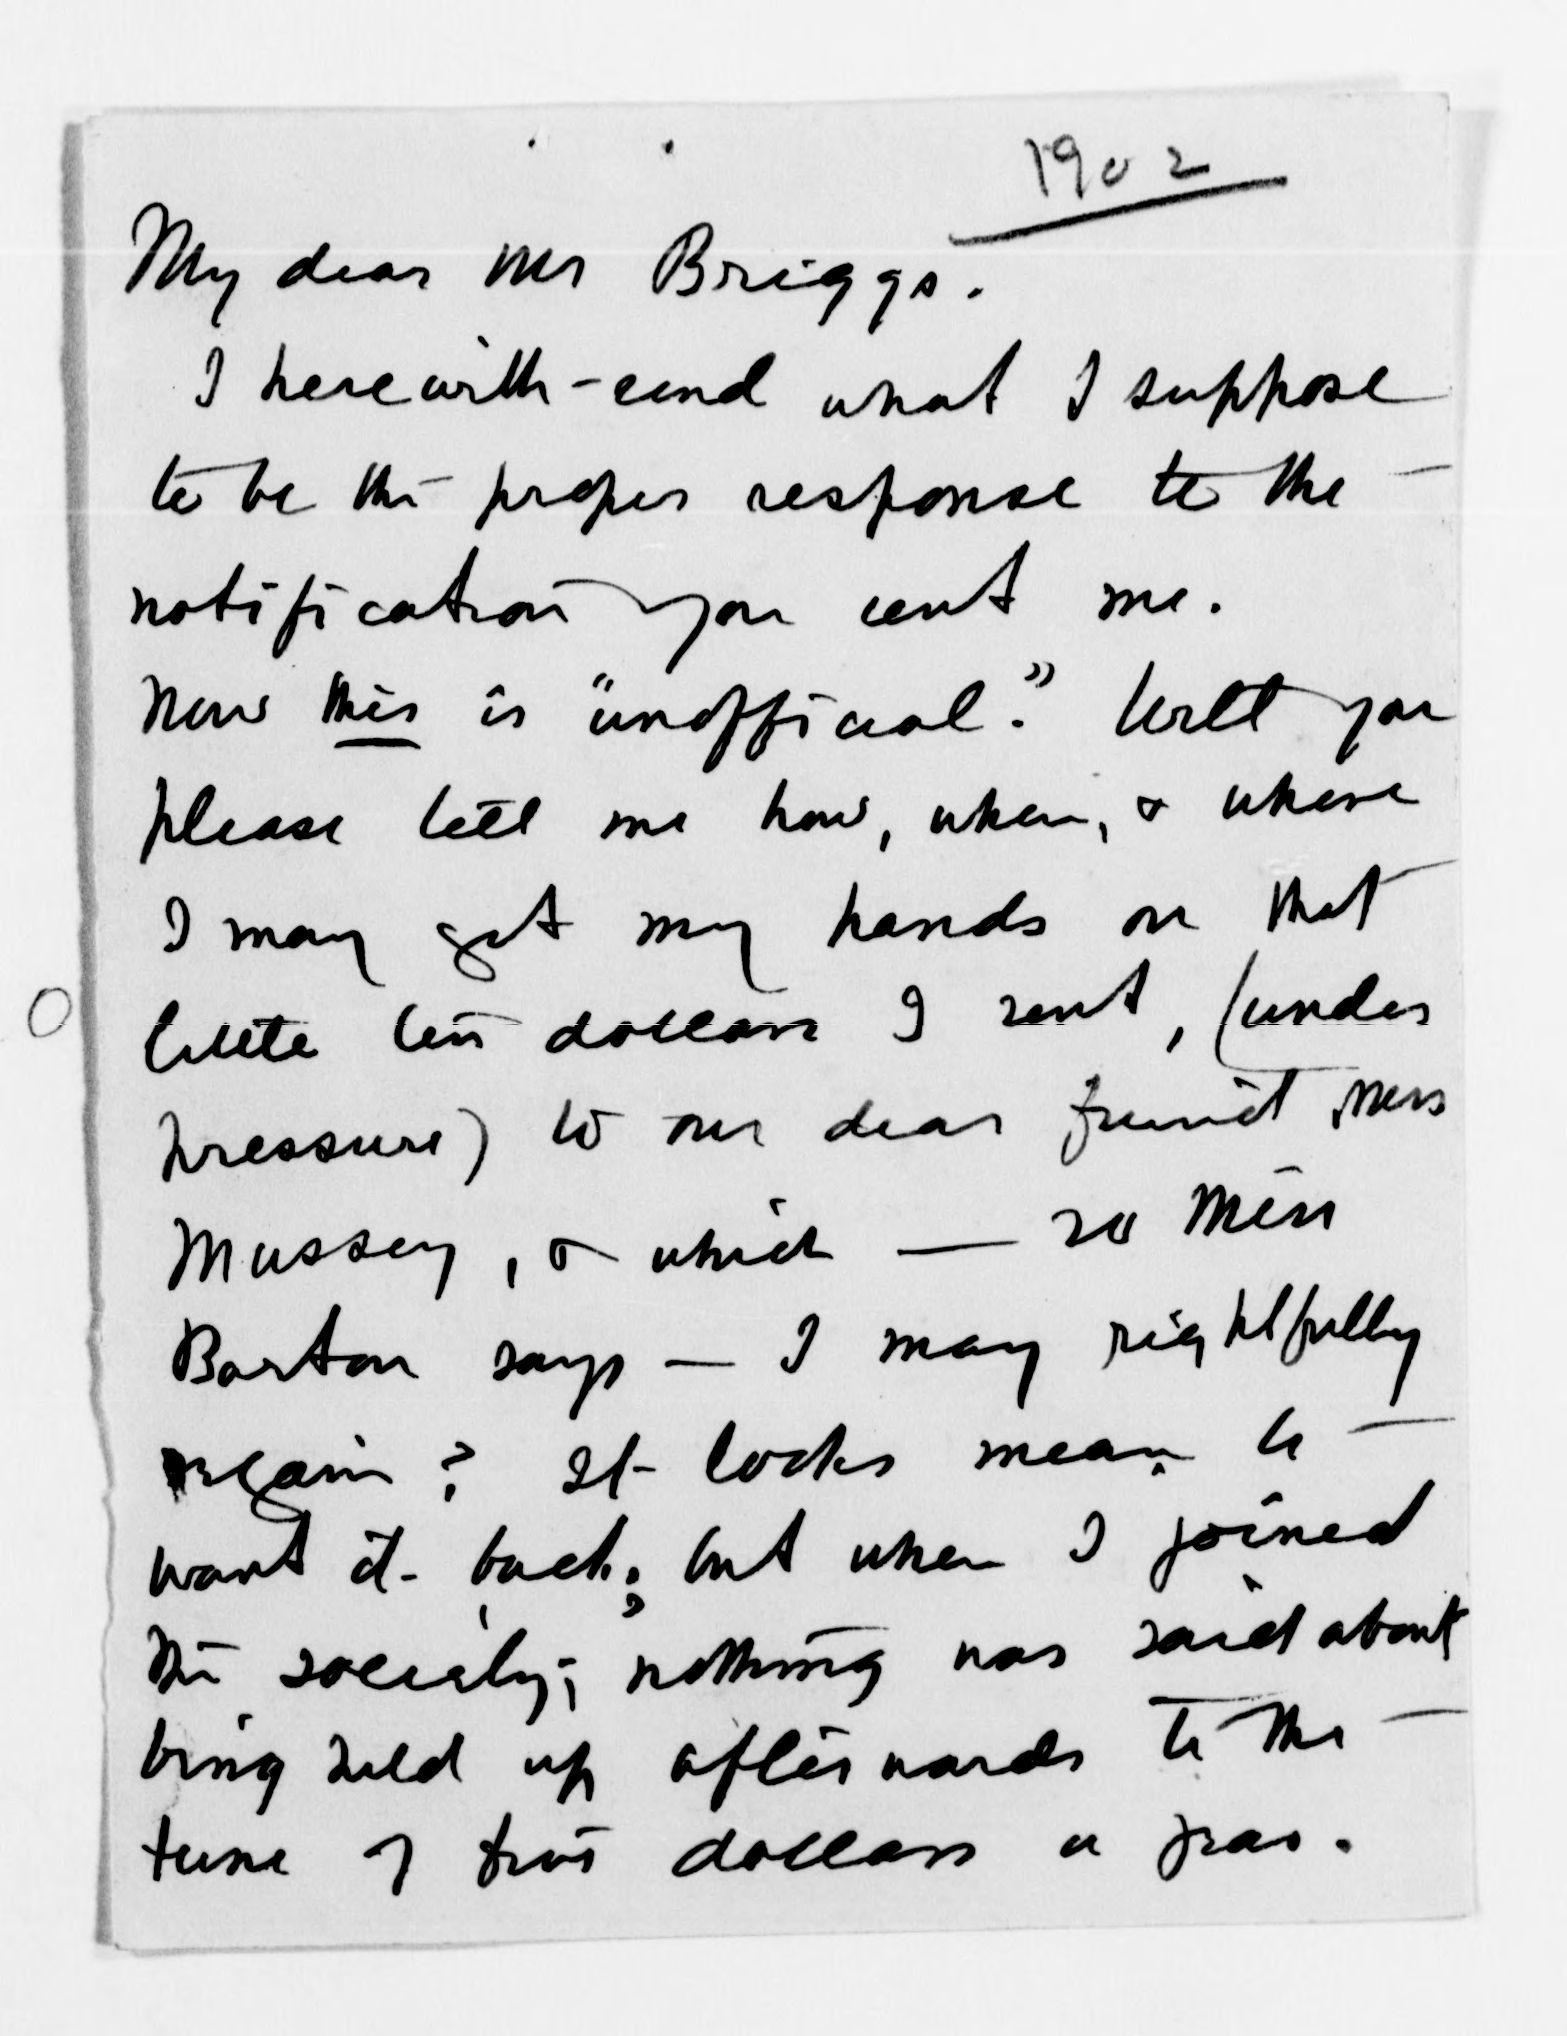 1902
My dear Mr Briggs.
I herewith send what I suppose
to be the proper response to the
notification you sent me.
Now this is "unofficial." Will you
please tell me how, when, & where
I may get my hands on that
little ten dollars I sent, (under
pressure) to our dear friend Mrs
Mussey, & which — so Miss
Barton says — I may rightfully
regain? It looks mean to
want it back; but when I joined
the society; nothing was said about
being held up afterwards to the
tune of five dollars a year.